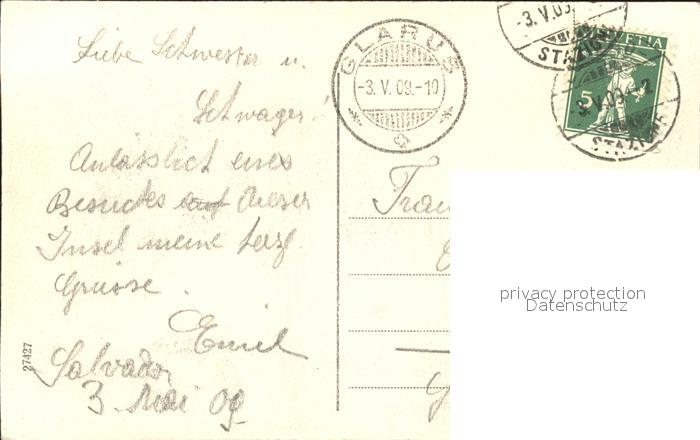 Liebe Schwester u.
Schwager!
Anlässlich eines
Besuches auf dieser
Insel meine herzl.
Grüsse.
Emil
3. Mai 09
27427
GLARUS
-3. V. 09.-10
-3. V. 09.
HELVETIA
5
3. V. 09. -12
Frau
privacy protection
Datenschutz